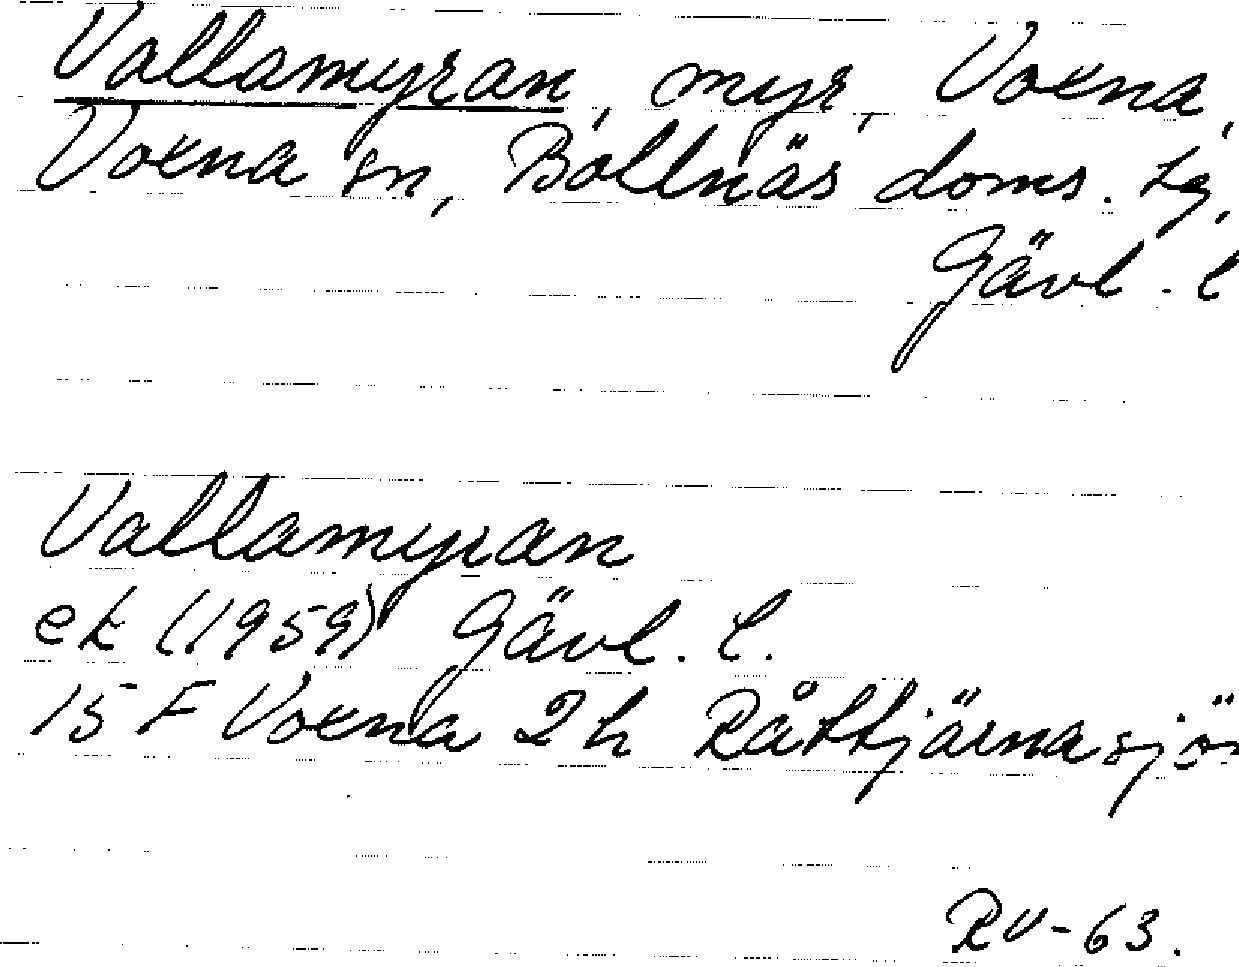 Vallamyran, myr, Voxna,
Voxna sn, Bollnäs doms. lg,
Gävl. l
Vallamyran
ek (1959) Gävl. l.
15 F Voxna 2 h Råttjärnasjö
RV-63.